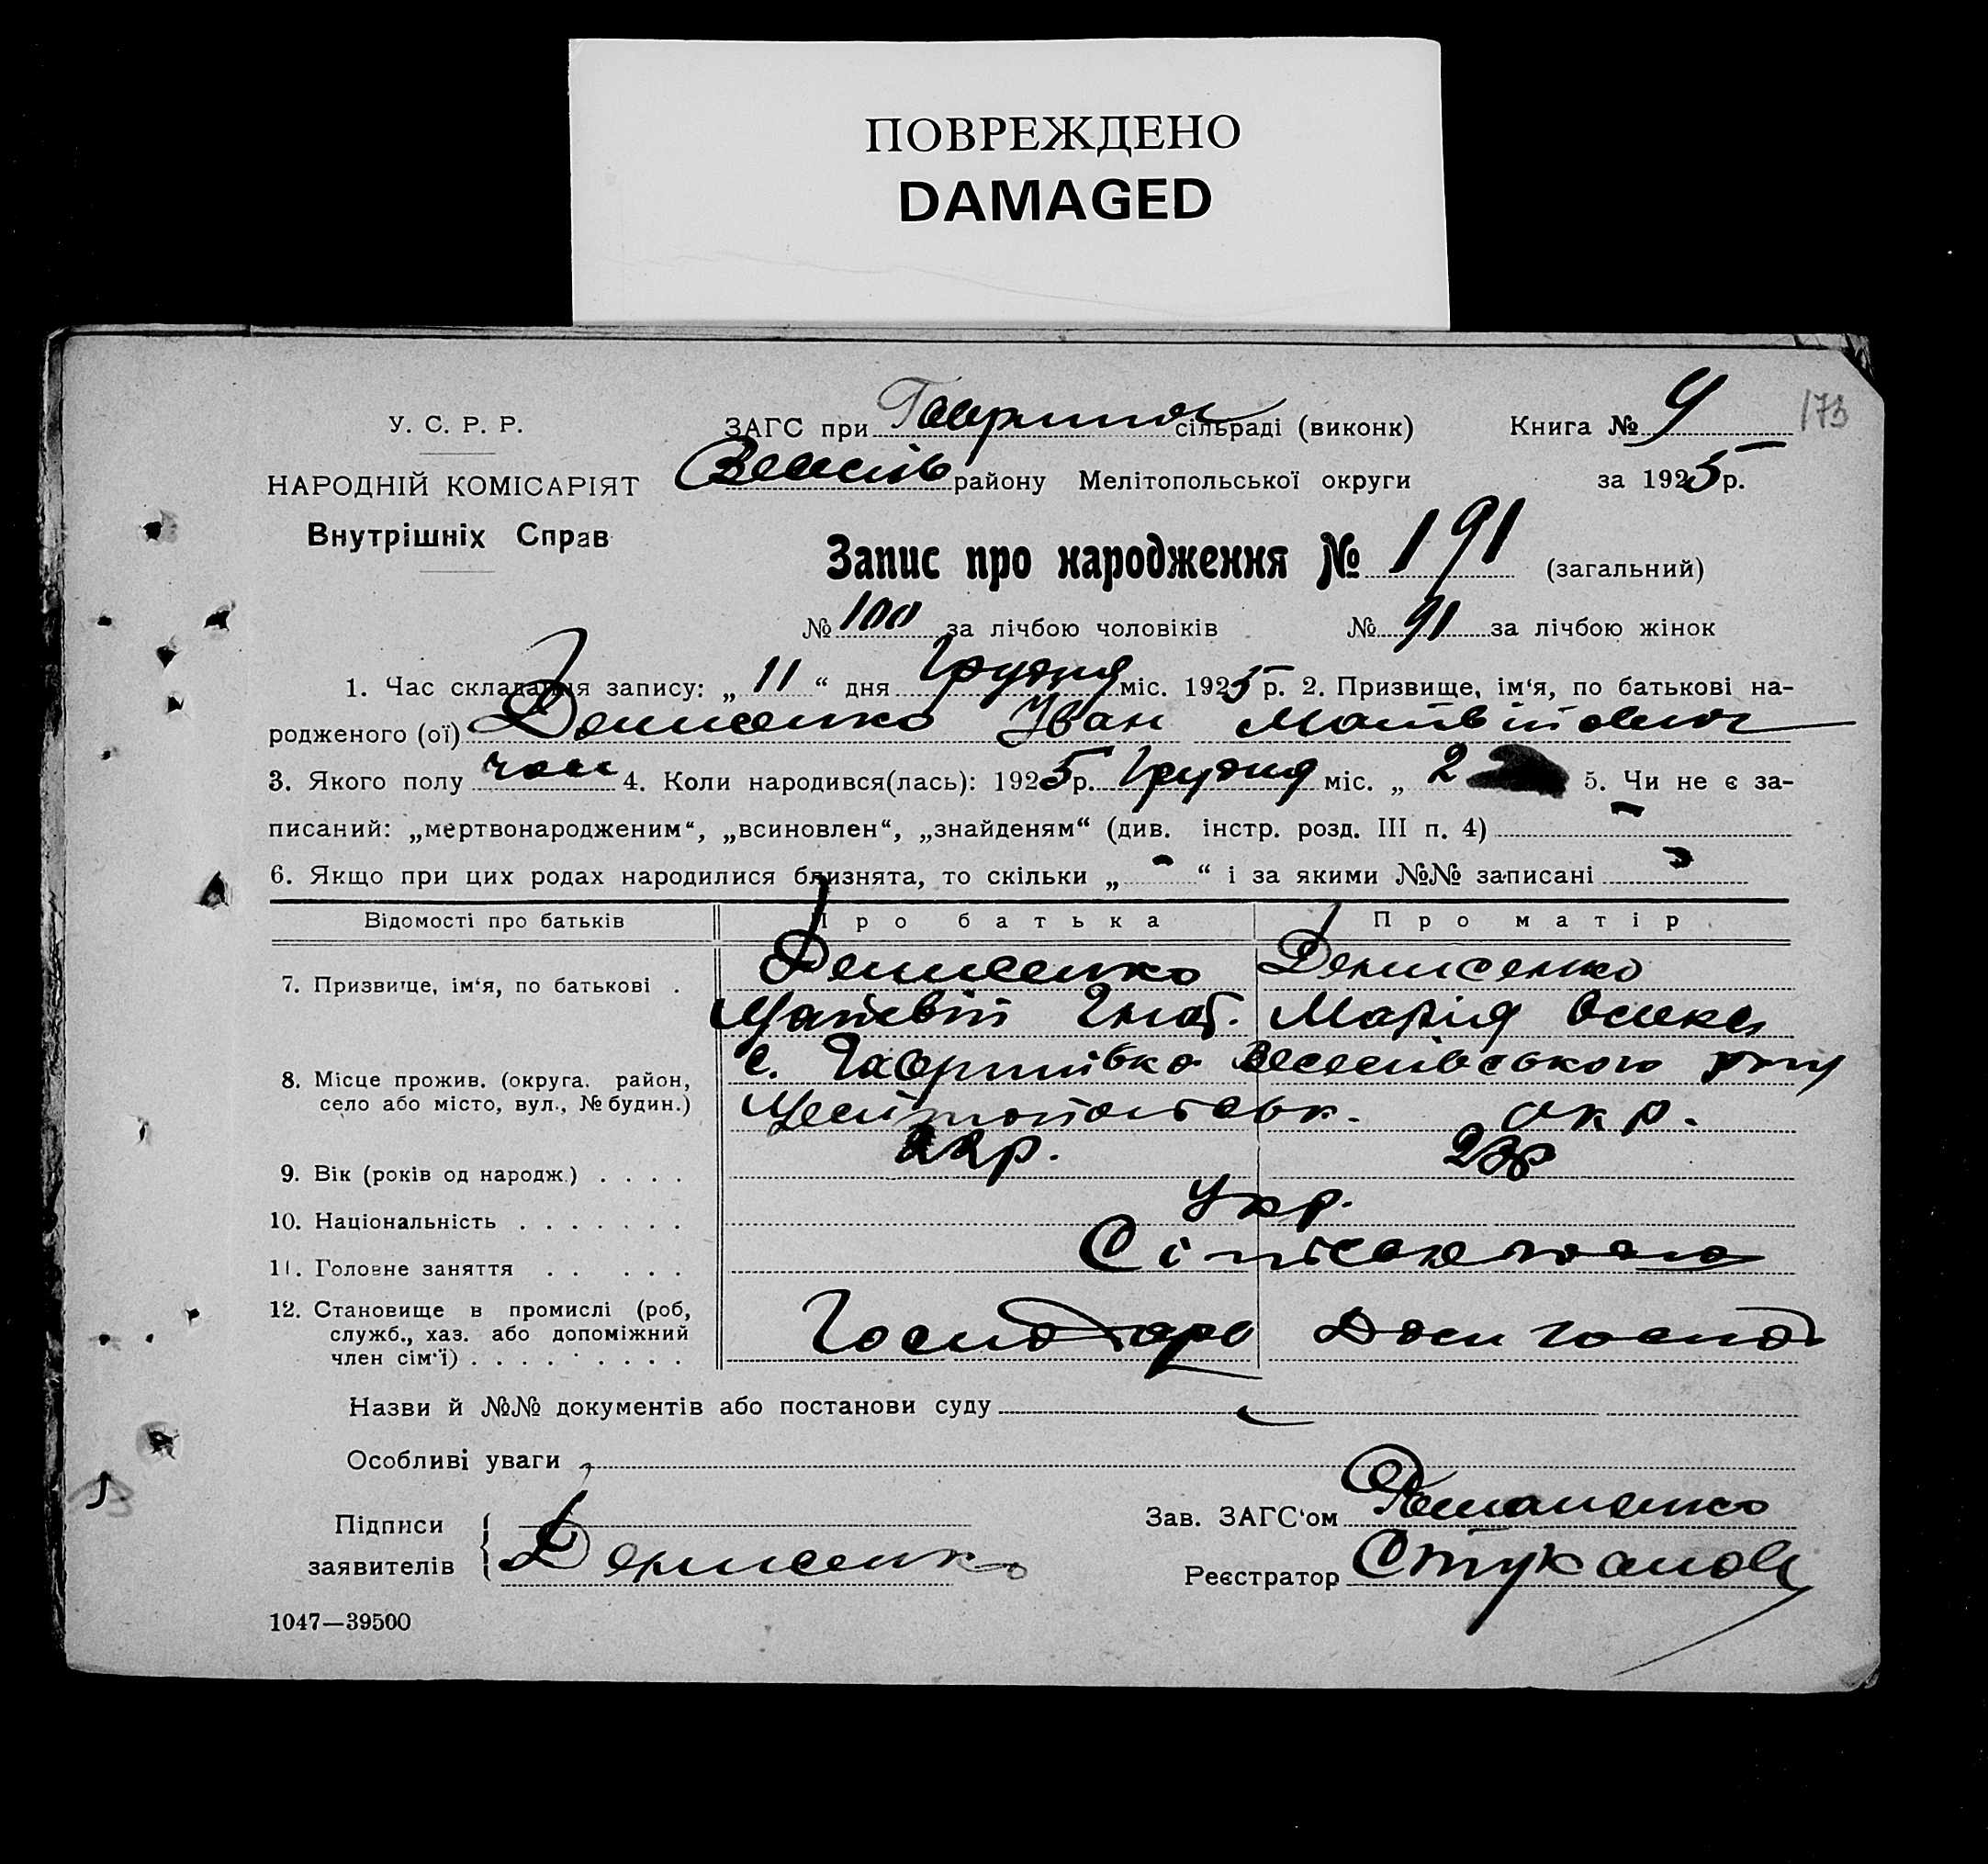 ПОВРЕЖДЕНО
DAMAGED
173
У. С. Р. Р.
НАРОДНІЙ КОМІСАРІЯТ
Внутрішніх Справ
ЗАГС при сільраді (виконк) Книга №
Веселів району Мелітопольської округи за 1925 р.
Запис про народження № 191 (загальний)
№ 100 за лічбою чоловіків № 91 за лічбою жінок
1. Час складання запису: „ 11 “ дня Грудня міс. 1925 р. 2. Призвище, ім‘я, по батькові на-
родженого (ої) Денисенко Іван Матвійович
3. Якого полу чол 4. Коли народився(лась): 1925 р. Грудня міс. „ 2 5. Чи не є за-
писаний: „мертвонародженим“, „всиновлен“, „знайденям“ (див. інстр. розд. III п. 4) -
6. Якщо при цих родах народилися близнята, то скільки „ - “ і за якими №№ записані
Відомості про батьків Про батька Про матір
7. Призвище, ім‘я, по батькові . Денисенко Денисенко
Матвій Гнат. Марія
8. Місце прожив. (округа. район, с. Гаврилівка Веселівського р-ну
село або місто, вул., № будин.) Мелітопольськ. окр.
9. Вік (років од народж.) . . . . 22р. 23р
10. Національність . . . . . . . Укр.
11. Головне заняття . . . . .
12. Становище в промислі (роб, Господарь Дом господ
служб., хаз. або допоміжний
член сім‘ї) . . . . . . . . .
Назви й №№ документів або постанови суду
Особливі уваги
Підписи
заявителів Денисенко
Зав. ЗАГС‘ом
Реєстратор
1047—39500